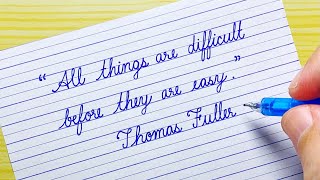 “All things are difficult
before they are easy.”
Thomas Fuller